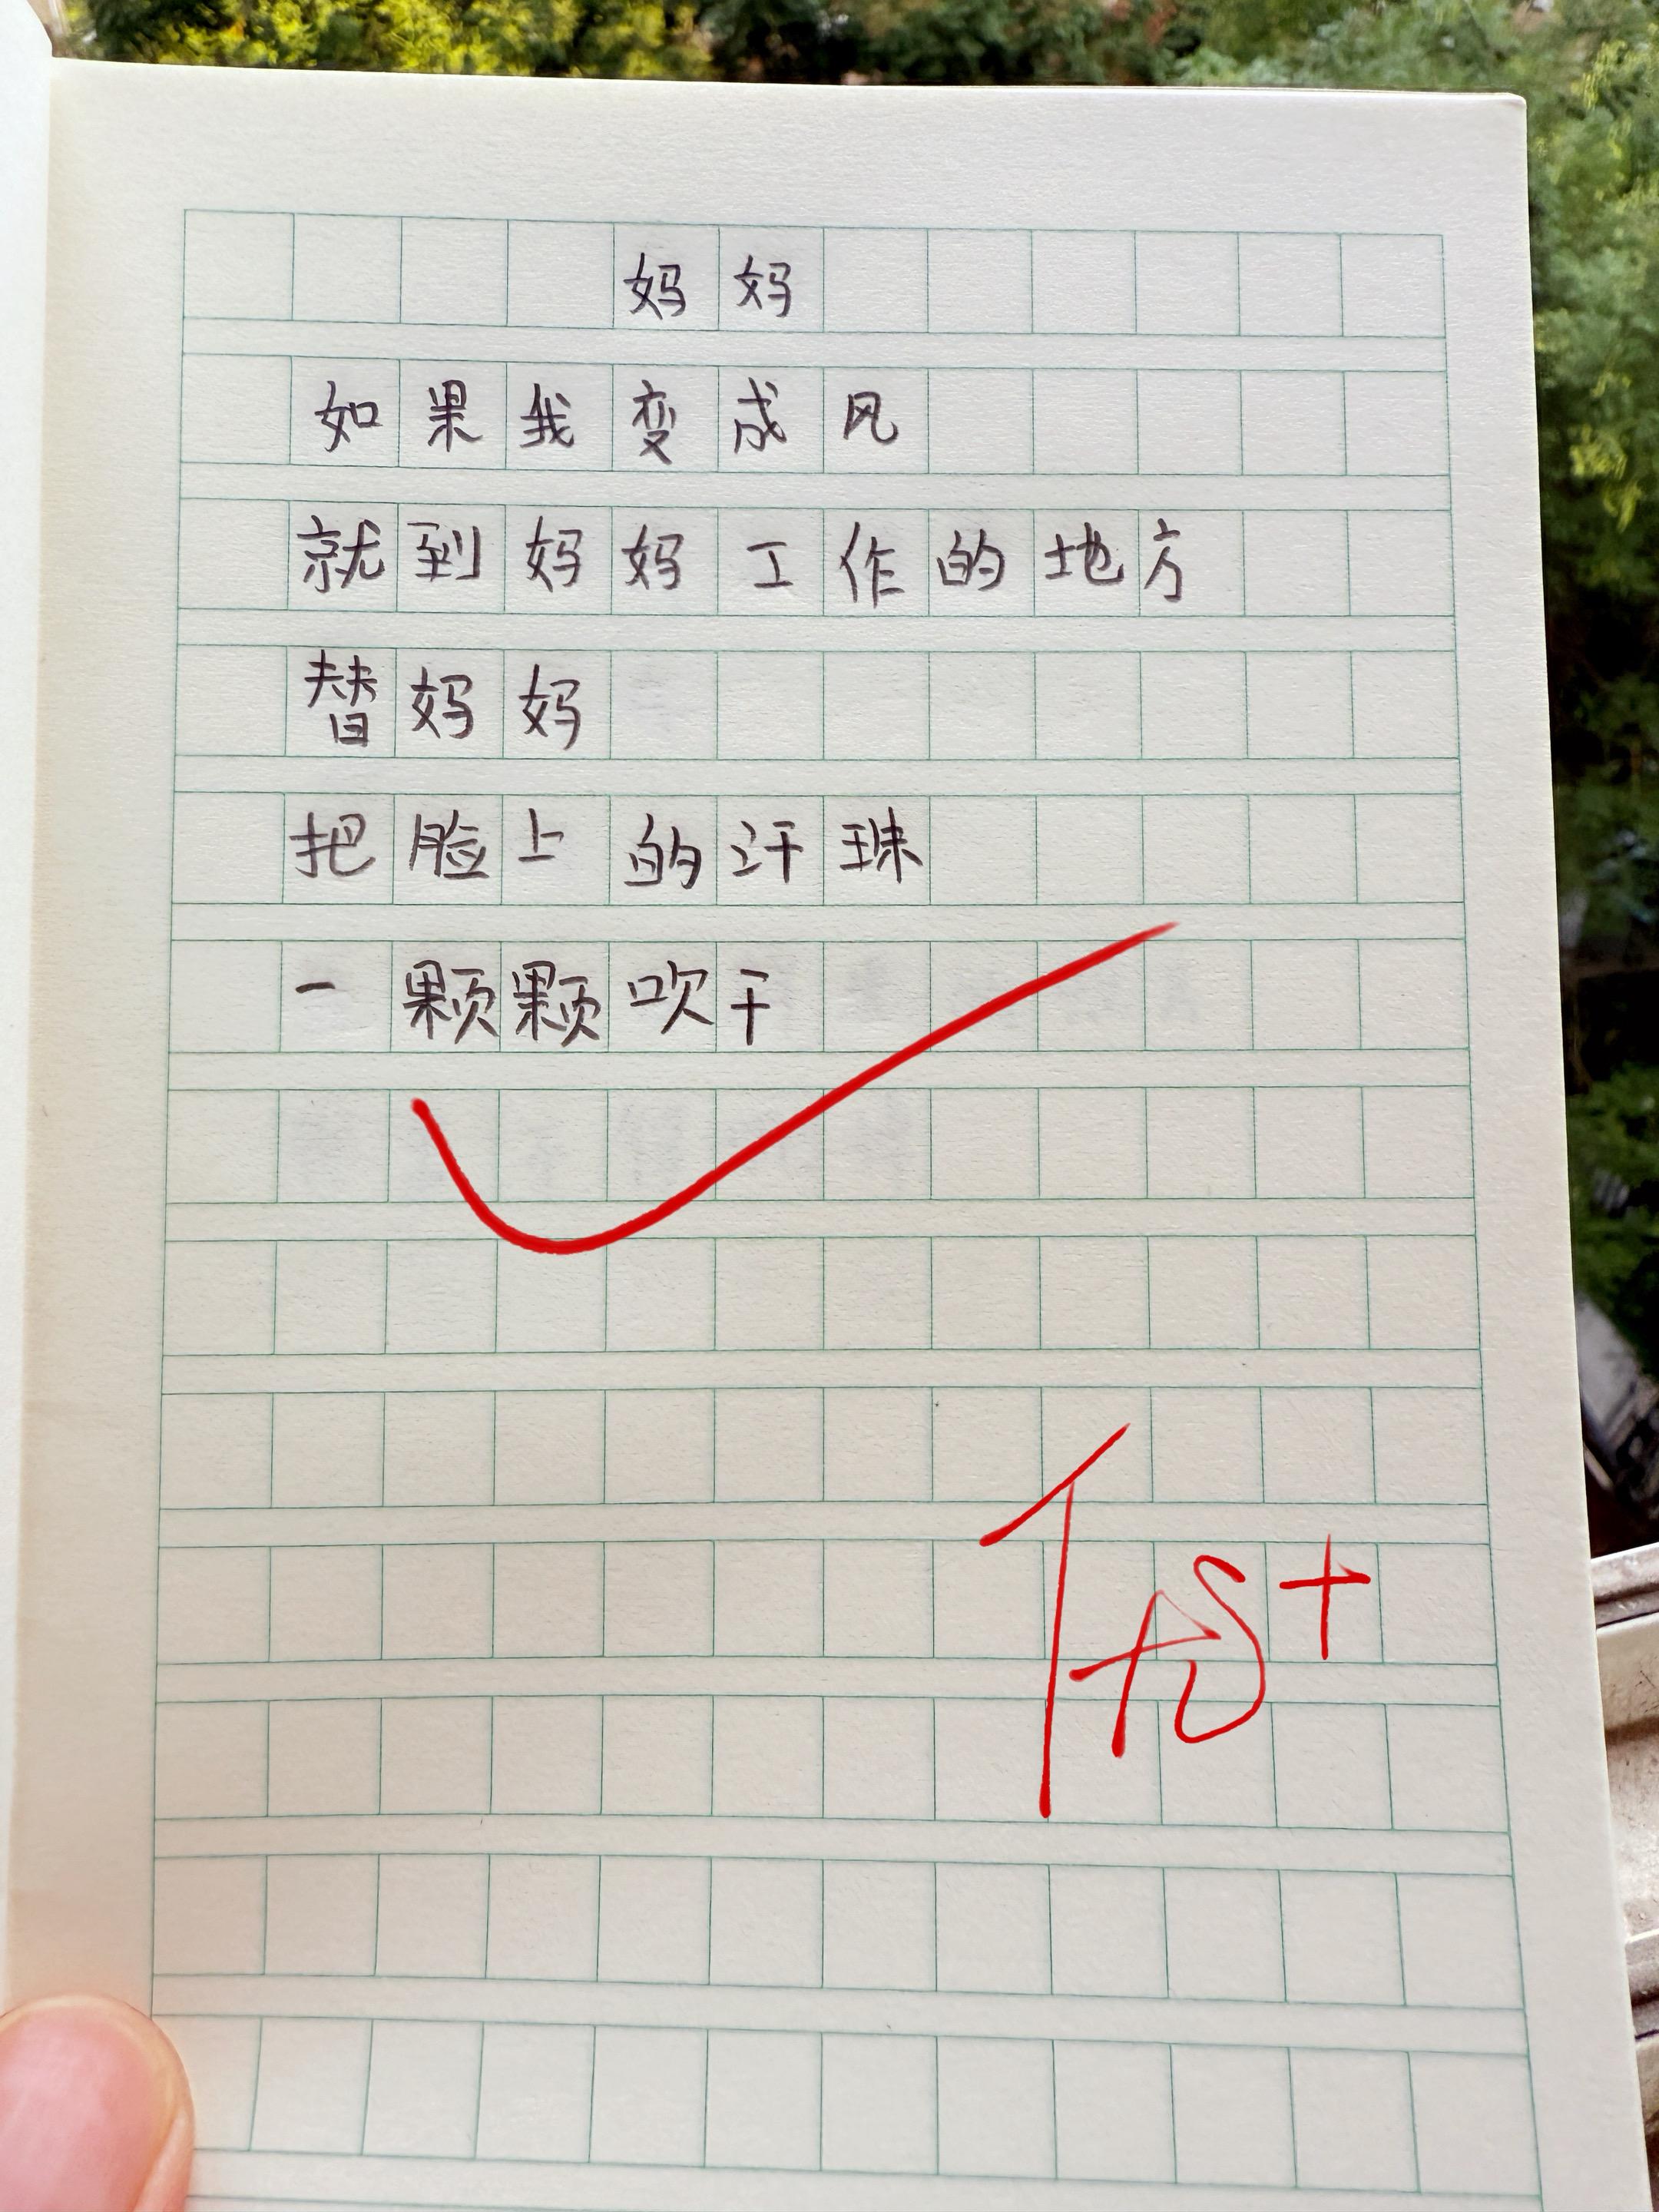 妈妈
如果我变成风
就到妈妈工作的地方
替妈妈
把脸上的汗珠
一颗颗吹干
优+